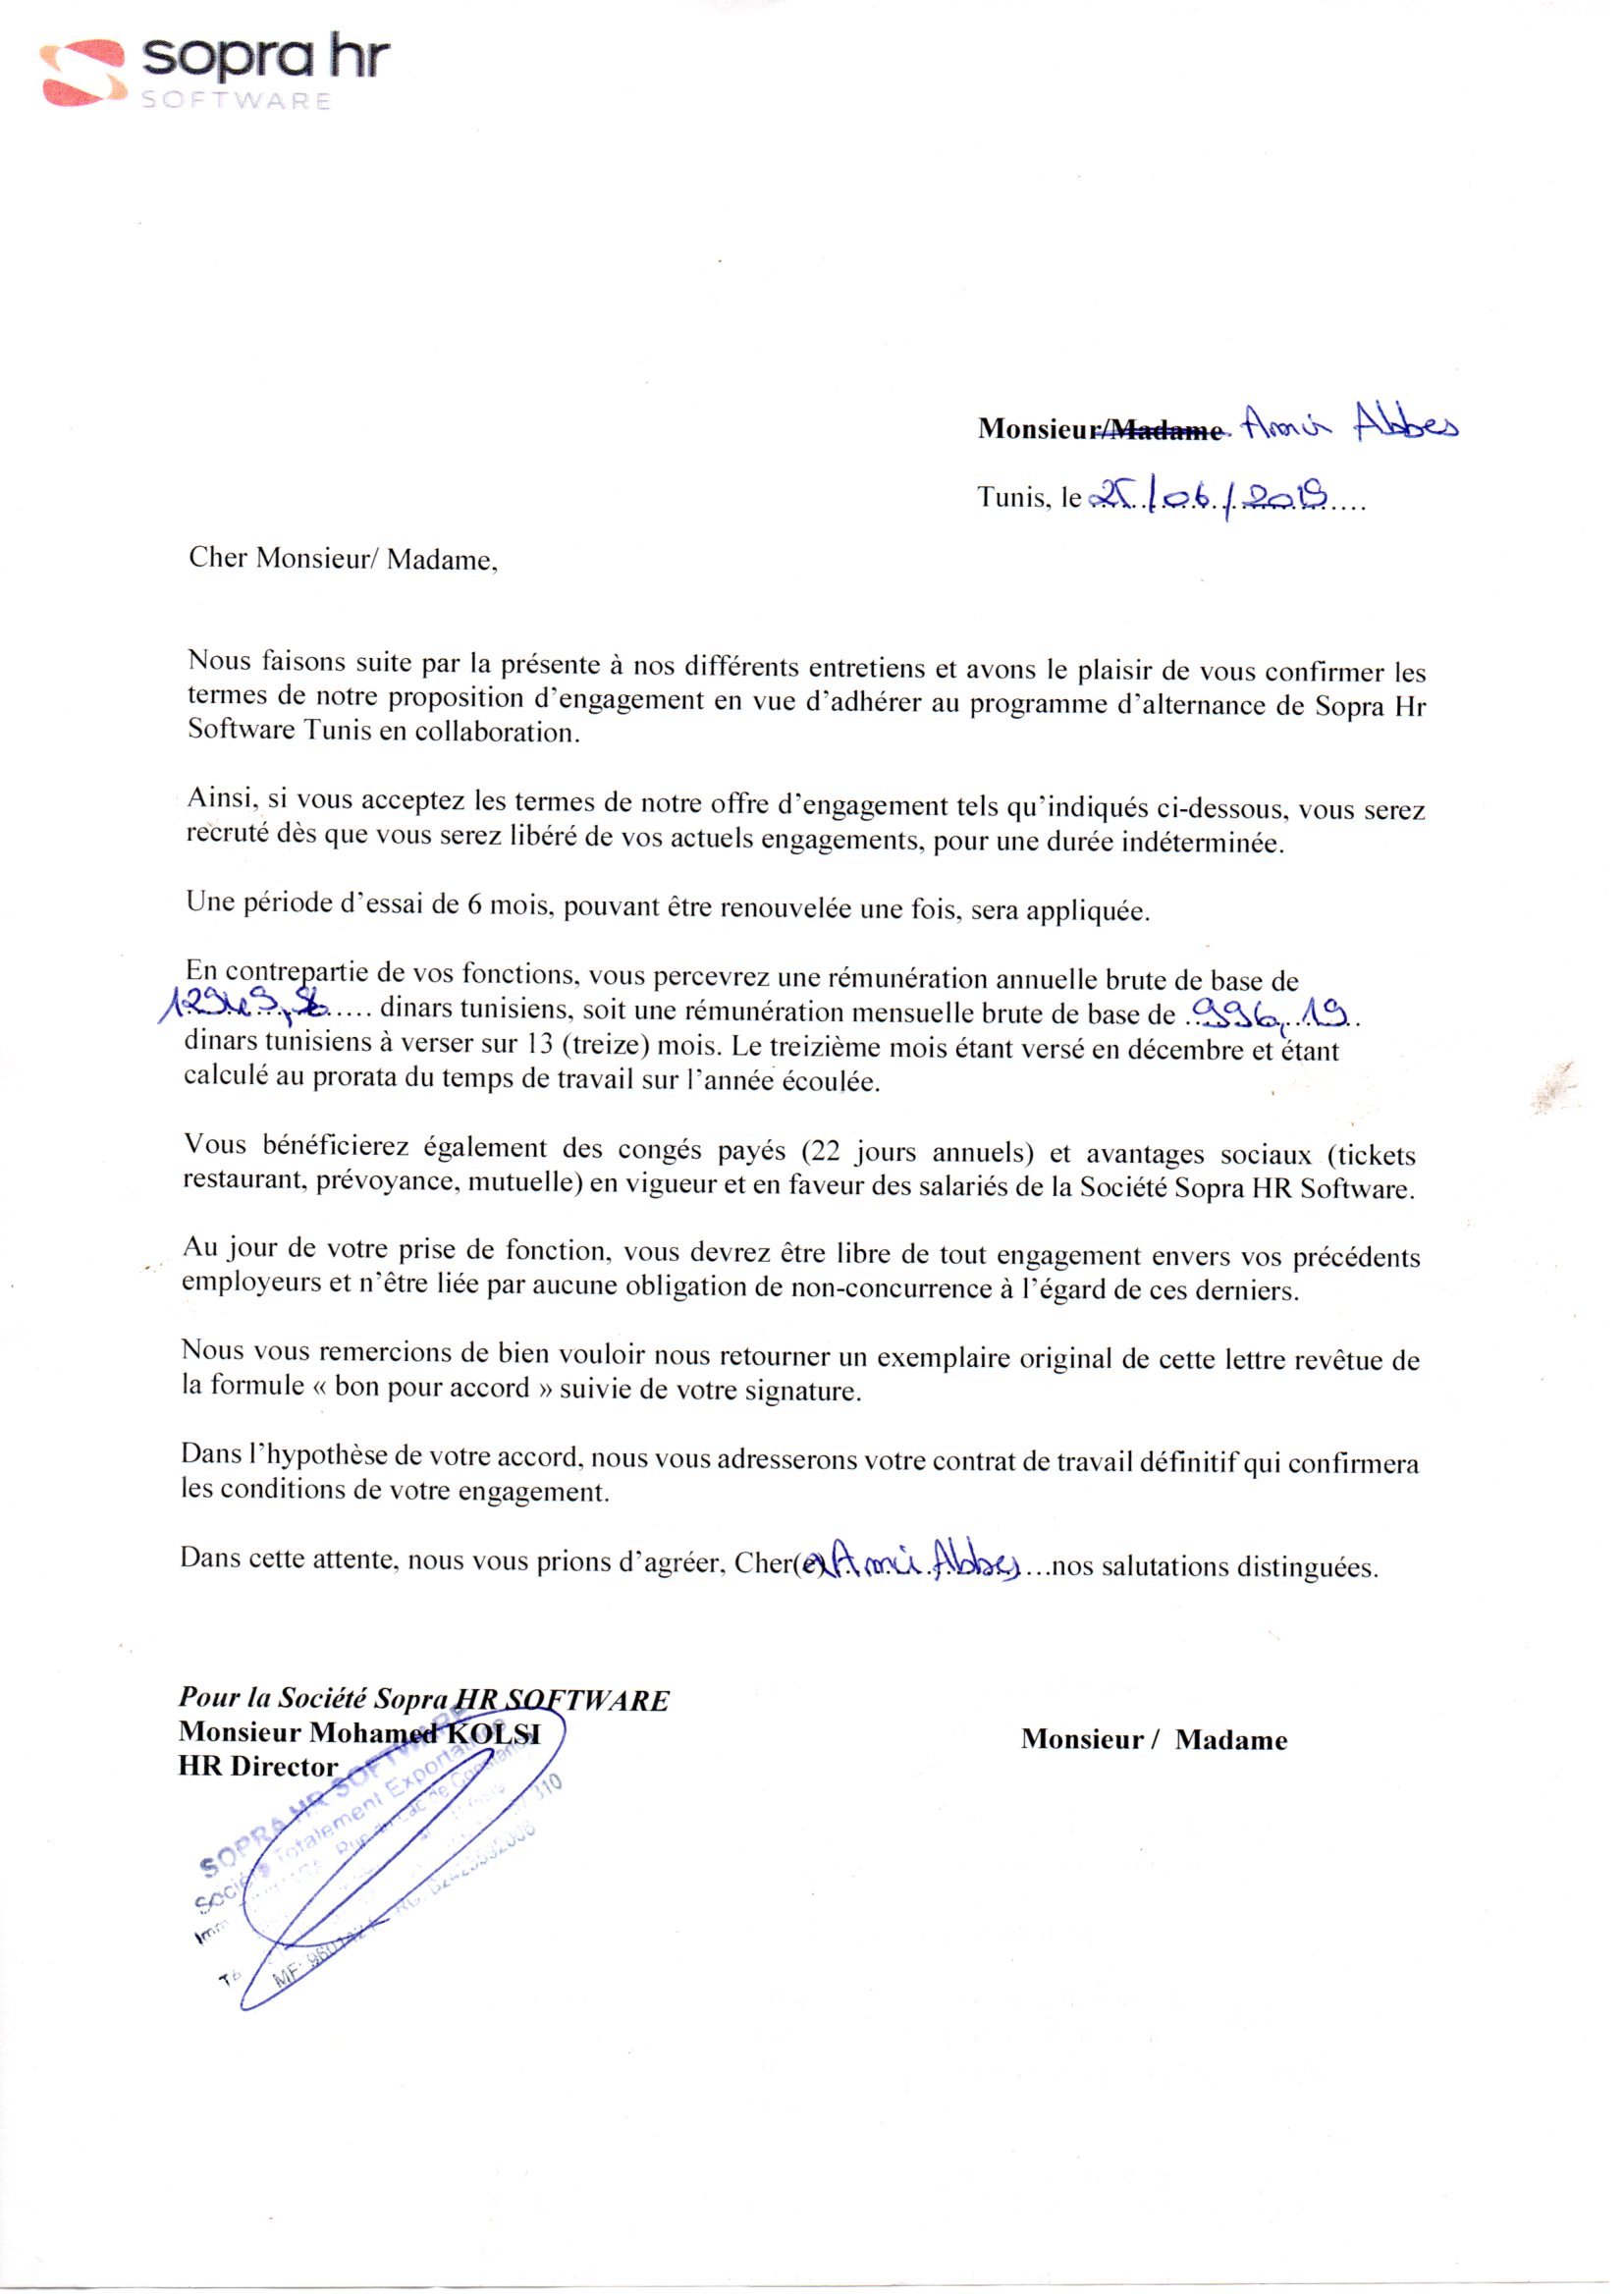 sopra hr
SOFTWARE
Monsieur/Madame Amir Abbes
Tunis, le 25/06/2019
Cher Monsieur/ Madame,
Nous faisons suite par la présente à nos différents entretiens et avons le plaisir de vous confirmer les
termes de notre proposition d'engagement en vue d'adhérer au programme d'alternance de Sopra Hr
Software Tunis en collaboration.
Ainsi, si vous acceptez les termes de notre offre d'engagement tels qu'indiqués ci-dessous, vous serez
recruté dès que vous serez libéré de vos actuels engagements, pour une durée indéterminée.
Une période d'essai de 6 mois, pouvant être renouvelée une fois, sera appliquée.
En contrepartie de vos fonctions, vous percevrez une rémunération annuelle brute de base de
..... dinars tunisiens, soit une rémunération mensuelle brute de base de 996,19
dinars tunisiens à verser sur 13 (treize) mois. Le treizième mois étant versé en décembre et étant
calculé au prorata du temps de travail sur l'année écoulée.
Vous bénéficierez également des congés payés (22 jours annuels) et avantages sociaux (tickets
restaurant, prévoyance, mutuelle) en vigueur et en faveur des salariés de la Société Sopra HR Software.
Au jour de votre prise de fonction, vous devrez être libre de tout engagement envers vos précédents
employeurs et n'être liée par aucune obligation de non-concurrence à l'égard de ces derniers.
Nous vous remercions de bien vouloir nous retourner un exemplaire original de cette lettre revêtue de
la formule « bon pour accord » suivie de votre signature.
Dans l'hypothèse de votre accord, nous vous adresserons votre contrat de travail définitif qui confirmera
les conditions de votre engagement.
Dans cette attente, nous vous prions d'agréer, Cher(e) Amir Abbes ...nos salutations distinguées.
Pour la Société Sopra HR SOFTWARE
Monsieur Mohamed KOLSI
Monsieur / Madame
HR Director
SOPRA HR SOFTWARE
Société Totalement Exportatrice
Rue du Lac de Constance